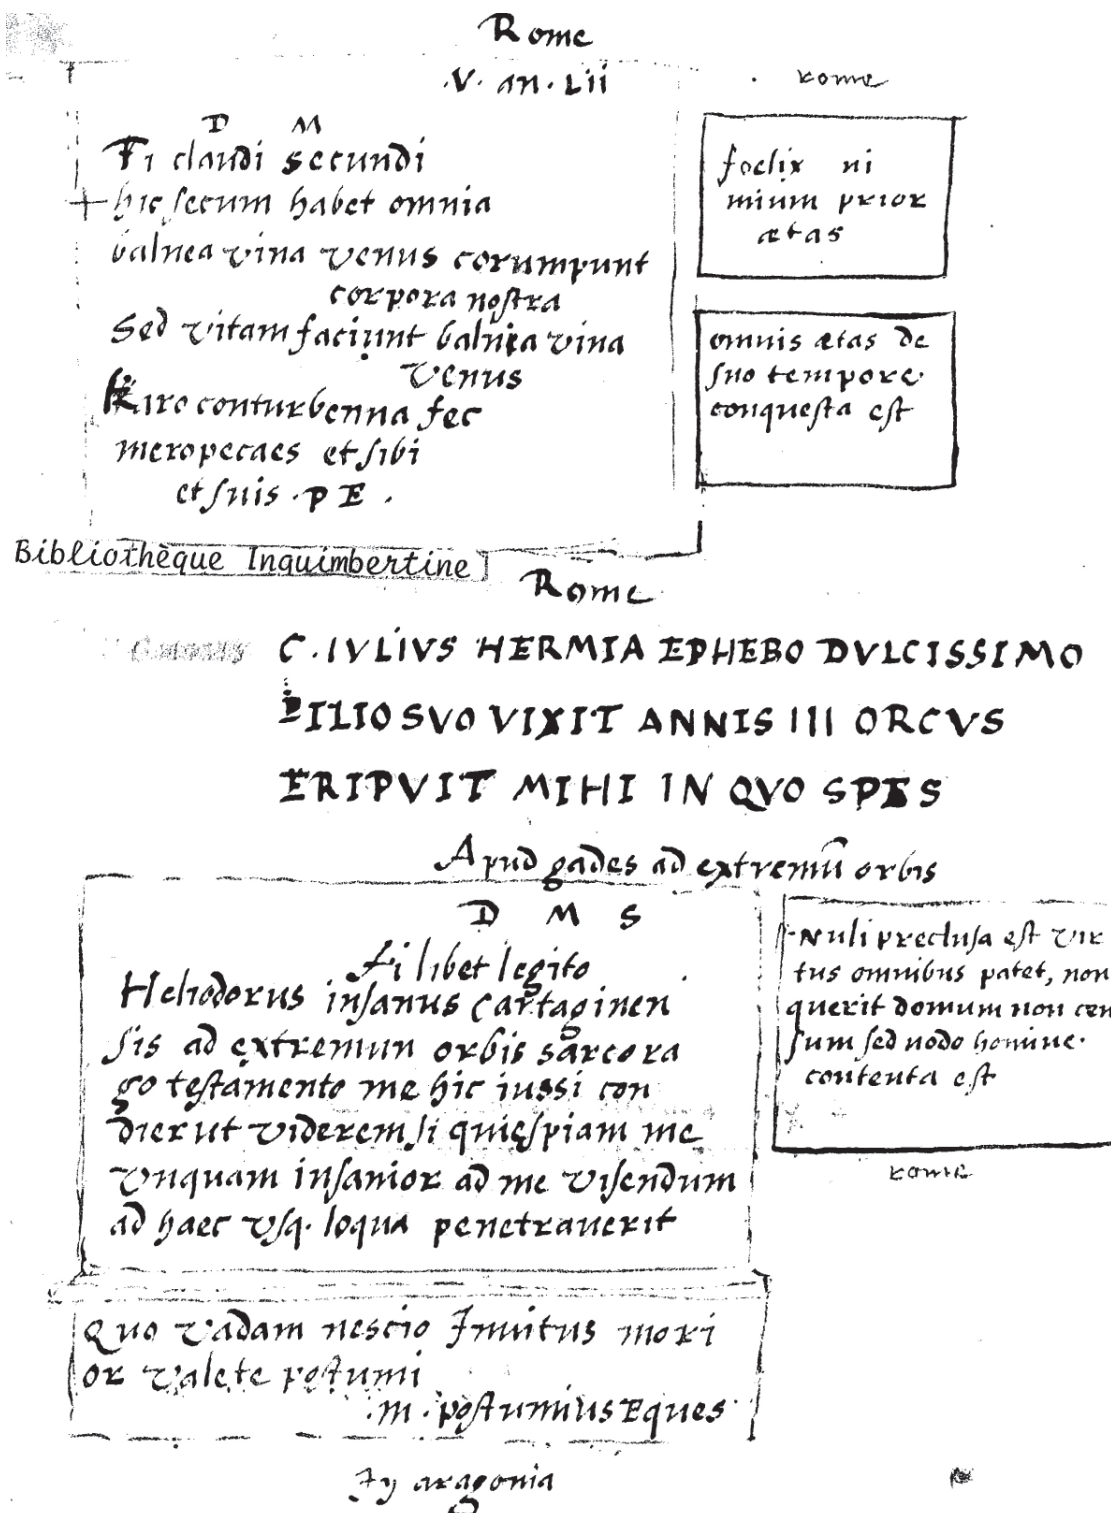 Rome
V. an. Lii
D M
Ti claudi secundi
hic secum habet omnia
balnea vina venus corumpunt
corpora nostra
Sed vitam faciunt balnea vina
venus
Karo conturbenna fec
meropecaes et sibi
et suis . P E .
rome
foelix ni
mium prior
ætas
omnis ætas de
suo tempore.
conquesta est
Bibliothèque Inguimbertine
Rome
C. IVLIVS HERMIA EPHEBO DVLCISSIMO
FILIO SVO VIXIT ANNIS III ORCVS
ERIPVIT MIHI IN QVO SPES
Apud gades ad extremū orbis
D M S
Si libet legito
Heliodorus insanus Cartaginen
sis ad extremun orbis sarcora
go testamento me hic iussi con
dier ut viderem si quispiam me
vnquam insanior ad me visendum
ad haec vsq. loqua penetraverit
Nuli preclusa est vir
tus omnibus patet, non
querit domum non cen
sum sed nodo homine.
contenta est
rome
Quo vadam nescio Inuitus mori
or valete postumi
.m. postumius Eques
Fy aragonia